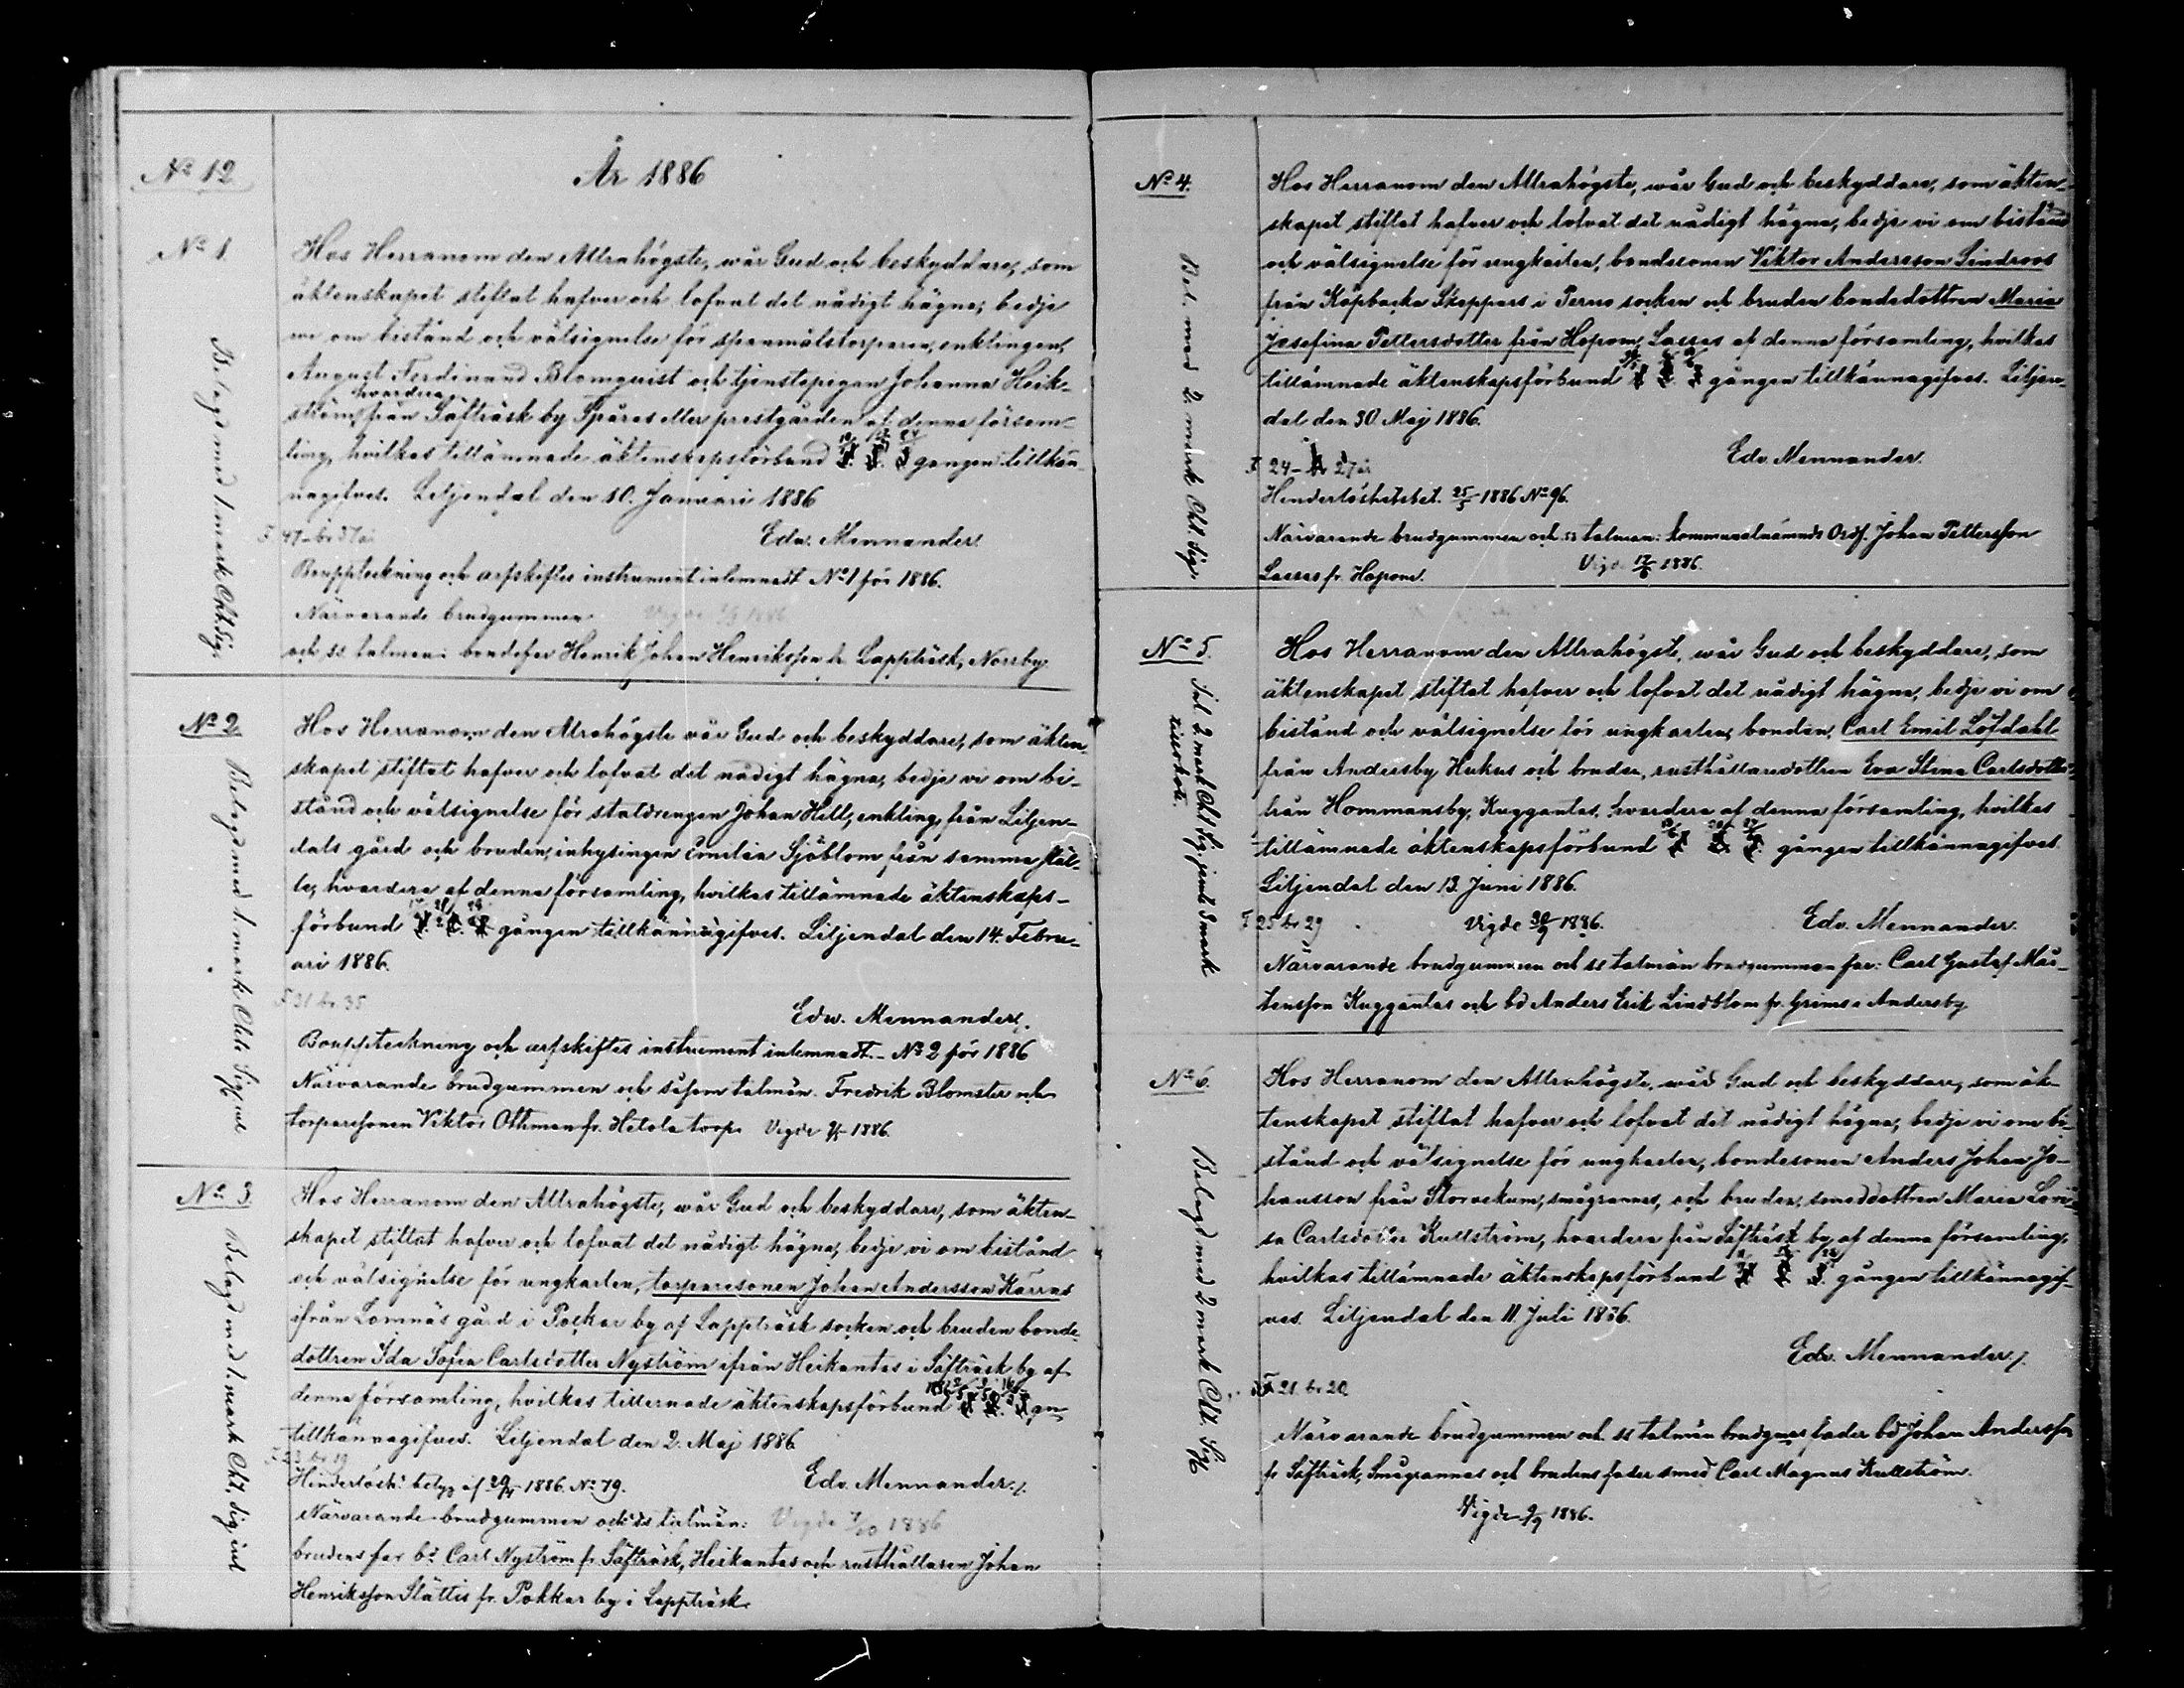 No 12
År 1886
No 1.
Hos Herranom den Allrahögste, wår Gud och beskyddare, som
äktenskapet stiftat hafver och lofvat det nådigt hägna, bedje
we om bistånd och välsignelse för spanmålstorparen, enklingen,
August Ferdinand Blomquist och tjenstepigan Johanna Heik-
hvardera
ström, från Säfträsk by Spåras eller prestgården af denna försam-
ling, hvilkas tillämnade äktenskapsförbund gången tillkän-
nagifves. Liljendal den 10. Januari 1886
Edv. Mennander.
Bouppteckning och arfskiftes instrument inlemnadt No 1 för 1886.
Närvarande brudgummen Vigde 1886
och ss. talman: bondefar Henrik Johan Henriksson fr. Lappträsk, Norrby.
Belagd med 1. mark Cht. Sig.
No 2.
Hos Herranom den Alrahögste vår Gud och beskyddare, som äkten-
skapet stiftat hafver och lofvat det nådigt hägna, bedje vi om bi-
stånd och välsignelse för statdrengen Johan Hill, enkling, från Liljen-
dals gård och bruden, inhysingen Emilia Sjöblom från samma stäl-
le, hvardera af denna församling, hvilkas tillämnade äktenskaps-
förbund gången tillkännagifves. Liljendal den 14. Febru-
ari 1886.
F 31 br 35
Edw. Mennander.
Bouppteckning och arfskiftes instrument inlemnadt. - No 2 för 1886
Närvarande brudgummen och såsom talmän. Fredrik Blomster och
torparesonen Viktor Othman fr. Hetola torp. Vigde 1886.
Belagd med 1. mark Cht
No 3.
Hos Herranom den Allrahögste, wår Gud och beskyddare, som äkten-
skapet stiftat hafver och lofvat det nådigt hägna, bedje vi om bistånd
och välsignelse för ungkarlen, torparesonen Johan Andersson Karras
ifrån Lomnäs gård i Pockar by af Lappträsk socken och bruden bonde-
dottren Ida Sofia Carlsdotter Nyström ifrån Heikantas i Säfträsk by af
denna församling, hvilkas tillernade äktenskapsförbund gn
tillkännagifves. Liljendal den 2. Maj 1886
F 23 br 19
Hinderlösh: betyg af 1886. No 79. Edv. Mennander.
Närvarande brudgummen och ss talmän: Vigde 7/10 1886
brudens far bd Carl Nyström fr Säfträsk, Heikantas och rusthållaren Johan
Henriksson Slättis fr. Pokkar by i Lappträsk.
Belagd med 1. mark Cht. Sig inl
No 4.
Hos Herranom den Allrahögste, wår Gud och beskyddare, som äkten-
skapet stiftat hafver och lofvat det nådigt hägna, bedje vi om bistånd
och välsignelse för ungkarlen, bondesonen Viktor Andersson Lindroos
från Köpbacka Skeppars i Perno socken och bruden bondedottren Maria
Josefina Pettersdotter från Hopom, Lasses af denna församling, hvilkas
tillämnade äktenskapsförbund gången tillkännagifves. Liljen-
dal den 30. Maj 1886.
Edv Mennander.
F 24 - br 27 år
Hinderlöshetsbet. 25/5 1886 No 96.
Närvarande brudgummen och ss talman: kommunalnämnds Ordf. Johan Pettersson
Lasses fr. Hopom. Vigde 17/6 1886.
Bel. med 2. mark Cht. Sig.
No 5.
Hos Herranom den Allrahögste, wår Gud och beskyddare, som
äktenskapet stiftat hafver och lofvat det nådigt hägna, bedje vi om
bistånd och välsignelse för ungkarlen, bonden, Carl Emil Löfdahl
från Andersby Hukus och bruden, rusthållaredottren Eva Stina Carlsdotter
från Hommansby, Kuggantas, hvardera af denna församling, hvilkas
tillämnade äktenskapsförbund gången tillkännagifves.
Liljendal den 13. Juni 1886.
F 25 br 29 Vigde 30/9 1886. Edv. Mennander.
Närvarande brudgummen och ss talmän brudgumman far: Carl Gustaf Mår-
tensson Kuggantas och bd Anders Erik Lindblom fr. Grims i Andersby
Inl 2 mark Cht Sig. jemte 3 mark
No 6.
Hos Herranom den Allrahögste, wår Gud och beskyddare, som äk-
tenskapet stiftat hafver och lofvat det nådigt hägna, bedje vi om bi-
stånd och välsignelse för ungkarlen, bondesonen Anders Johan Jo-
hansson från Storvekum, smågrannas, och bruden, smeddottren Maria Lovi-
sa Carlsdotter Kullström, hvardera från Säfträsk by af denna församling,
hvilkas tillämnade äktenskapsförbund gången tillkännagif-
ves. Liljendal den 11. Juli 1886.
Edv. Mennander.
F 21 br 20
Närvarande brudgummen och ss talmän brudgums fader bd Johan Andersson
fr Säfträsk, Smågrannas och brudens fader smed Carl Magnus Kullström.
Vigde 9/9 1886.
Belagd med 2 mark Cht. Sig